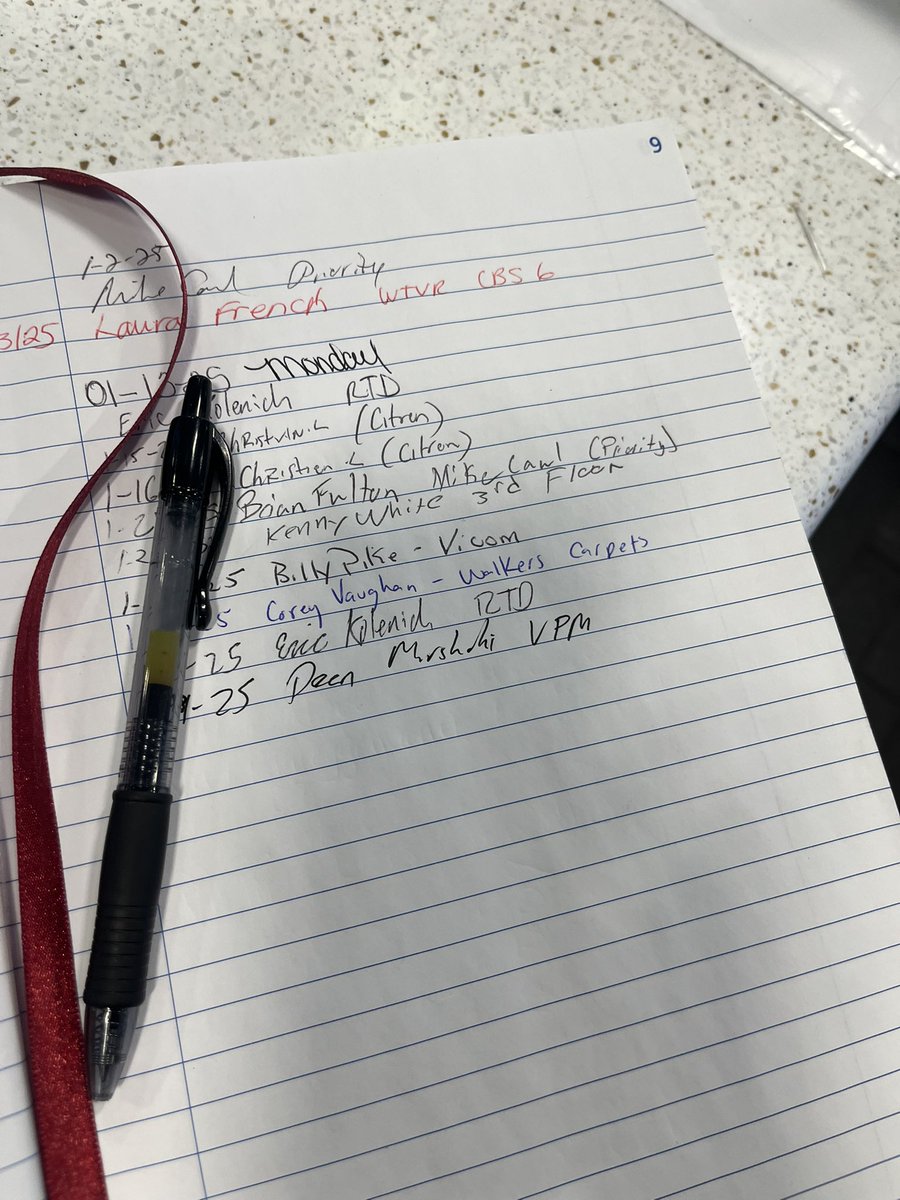 9
1-2-25
Mike Caul Priority
3/25 Laura French WTVR CBS 6
Monday
Eric Kolenich RTD
(Citron)
1-16 Christian L (Citron)
1-2 Brian Fulton Mike Caul (Priority)
1-2 Kenny White 3rd Floor
25 Billy Pike - Vicom
5 Corey Vaughan - Walkers Carpets
-25 Eric Kolenich RTD
-25 Deen VPM